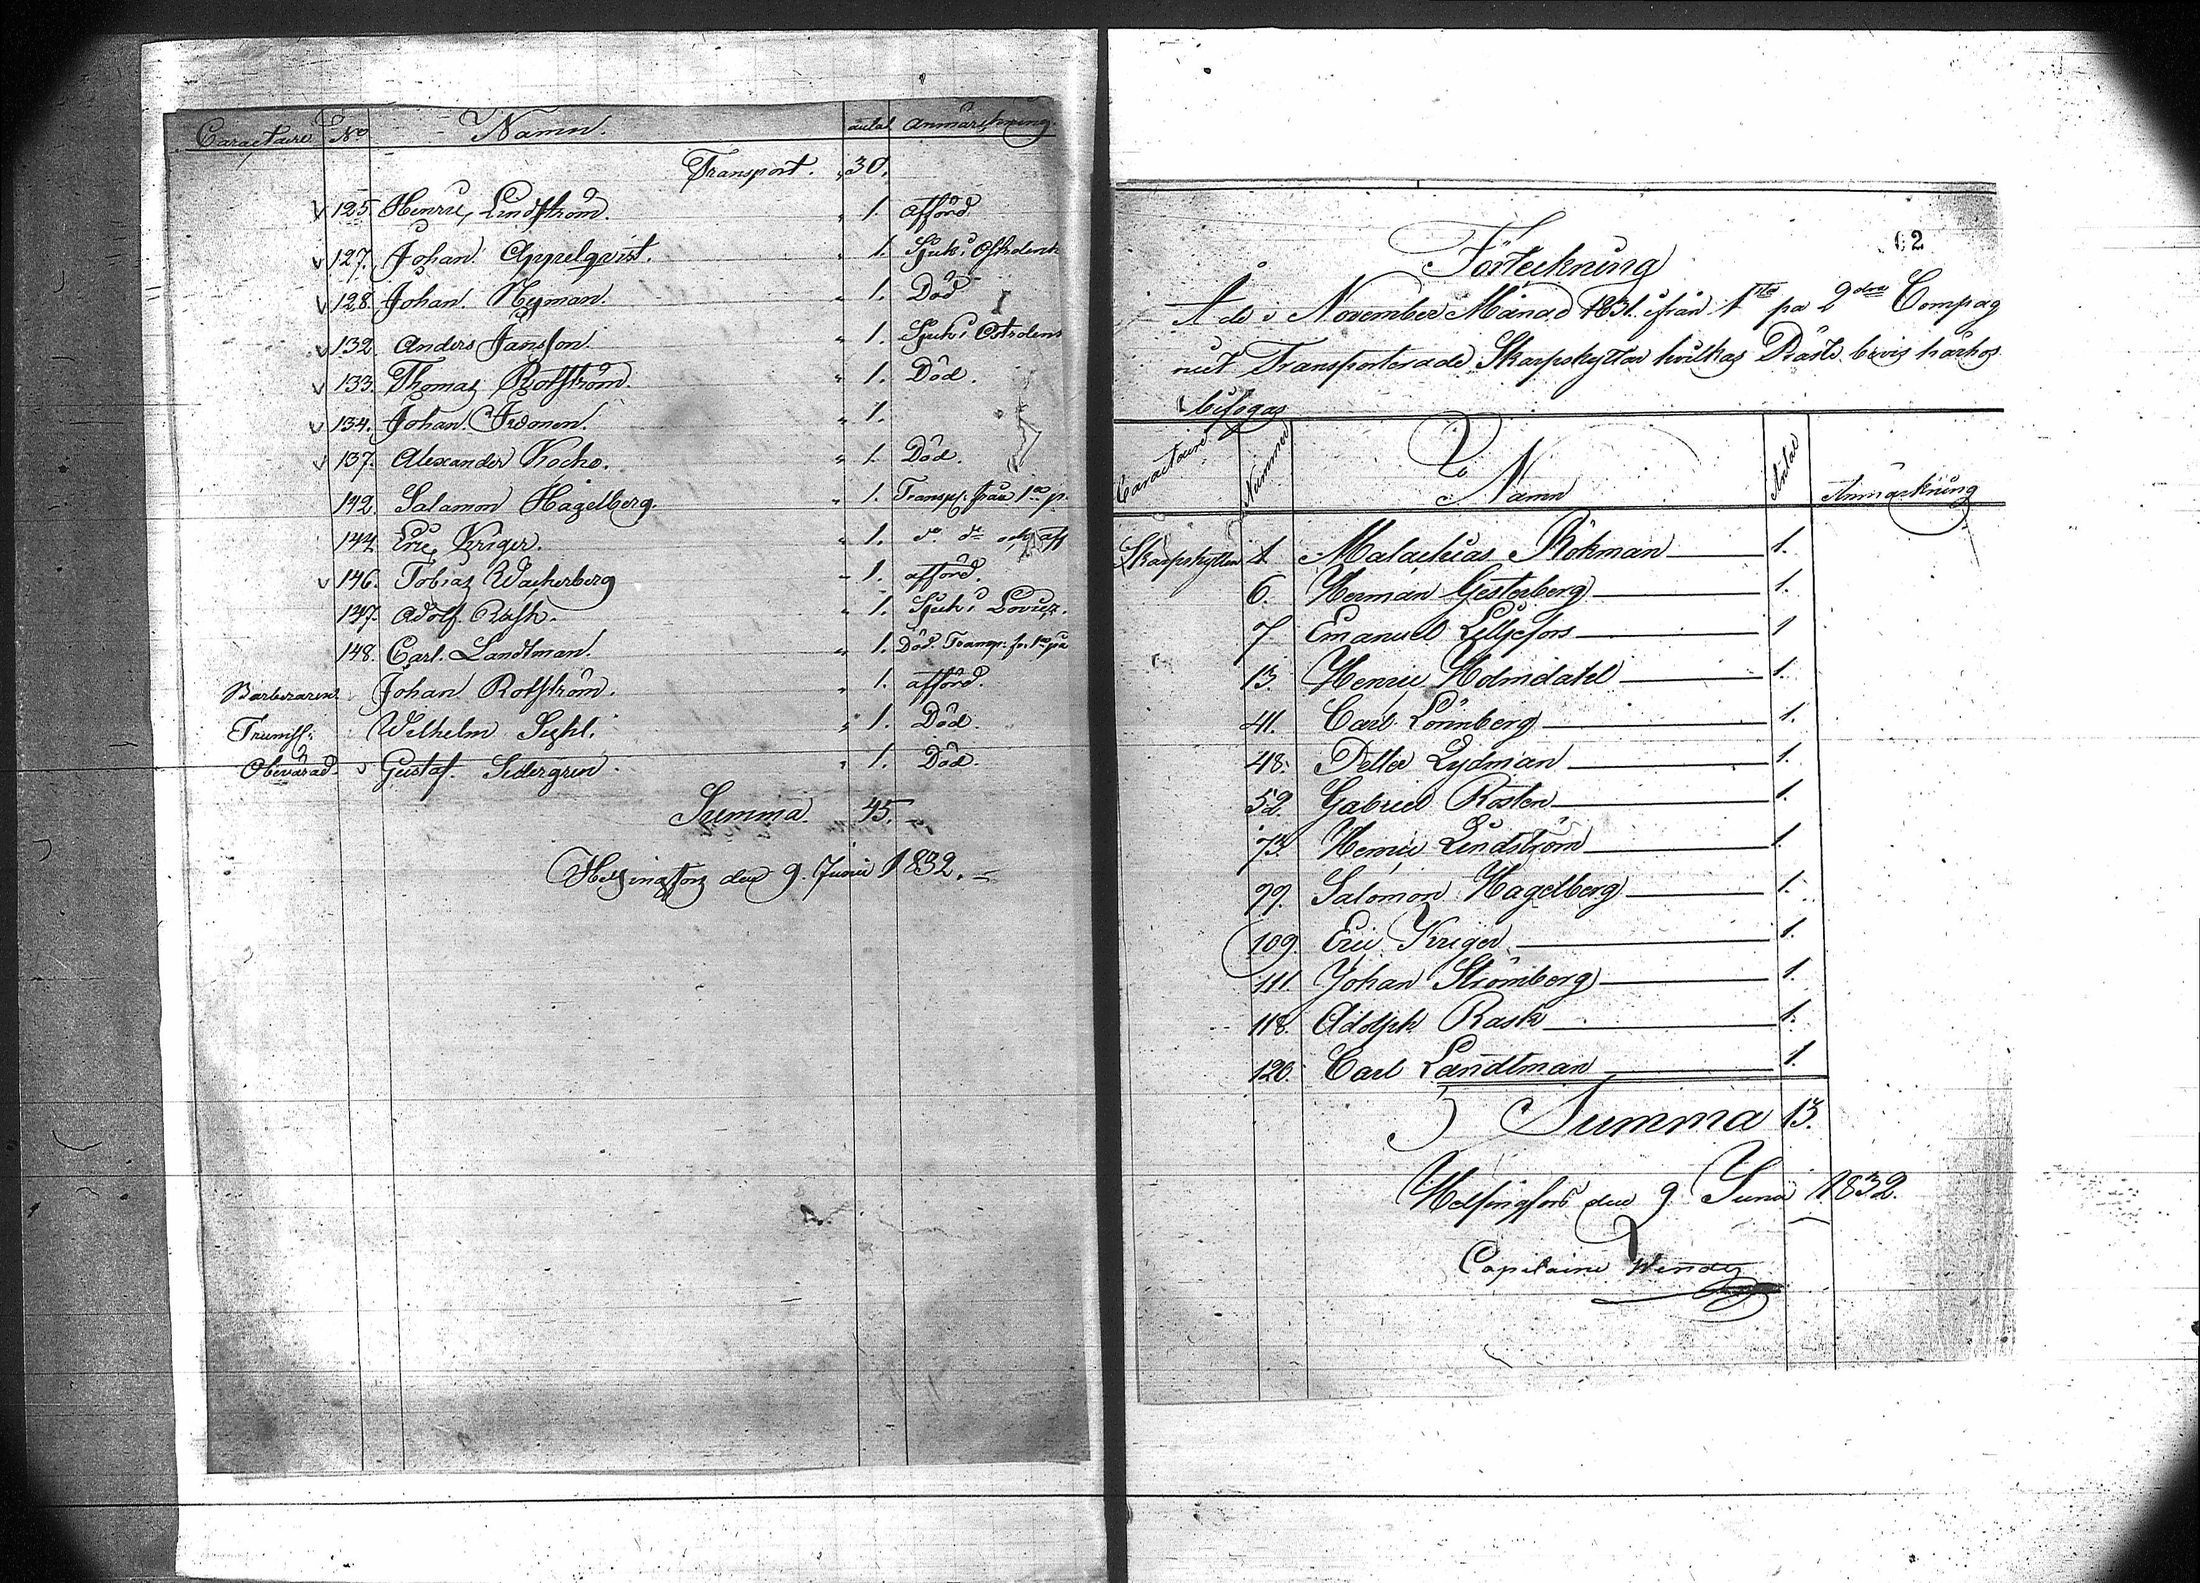 Caractaire No Namn. antal Anmärkning.
Transport. 30.
125. Henric Lindström. 1. afförd
127. Johan Appelqvist. 1. Sjuk i
128. Johan Nyman. 1. Död
132. Anders Jansson. 1. Sjuk i
133. Thomas Rotström. 1. Död.
134. Johan 1.
137. Alexander Kocko. 1. Död.
142. Salamon Hagelberg. 1. Transp. från 1ta p.
144. Eric Kriger. 1. do do och aff
146. Tobias Wackerberg 1. afförd.
147. Adolf Rask. 1. Sjuk i Lovisa.
148. Carl Landtman. 1. Död. Transp. fr. 1ta på
Barberaren Johan Rotström. 1. afförd.
Wilhelm 1. Död.
Gustaf Sedergren 1. Död.
Summa. 45.
Helsingfors den 9. Junii 1832.
62
Förteckning
Å de i November Månad 1831 ifrån 1sta på 2dra Compag
niet Transporterade Skarpskyttar hvilkas bevis härhos
bifogas
Caractaire Nummer Namn Antal Anmärkning
Skarpskytten 1 Malachias Rökman 1.
6. Herman Gesterberg 1.
7 Emanuel Liljefors 1
13. Henric Holmdahl 1.
41. Carl Lönnberg 1.
48. Petter Lydman 1.
52. Gabriel Rosten 1.
73. Henric Lindström 1.
99. Salomon Hagelberg 1.
109. Eric Kriger 1.
111. Johan Strömberg 1.
118. Adolph Rask 1.
120. Carl Landtman 1.
Summa 13.
Helsingfors den 9 Junii 1832.
Capitaine Wendt